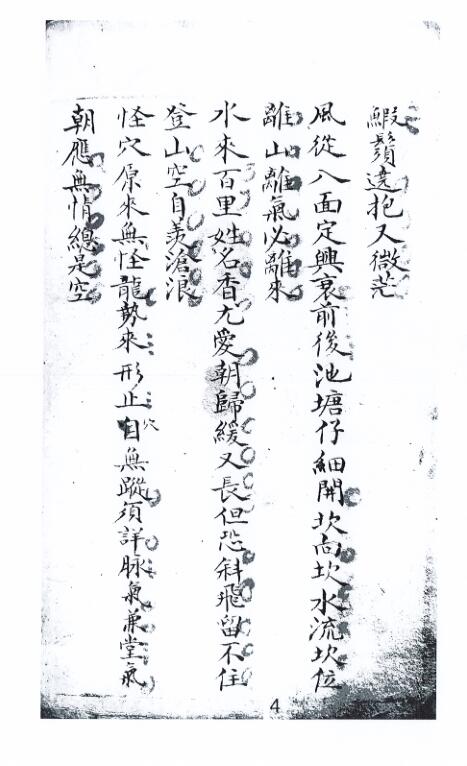 鰕鬚遠抱又微茫
風從八面定興衰前後池塘仔細開坎向坎水流坎位
離山離氣必離來
水來百里姓名香尤愛朝歸緩又長但恐斜飛留不住
登山空自羨滄浪
怪穴原來無怪龍勢來形止自無蹤須詳脉氣兼堂氣
穴
朝應無情總是空
4